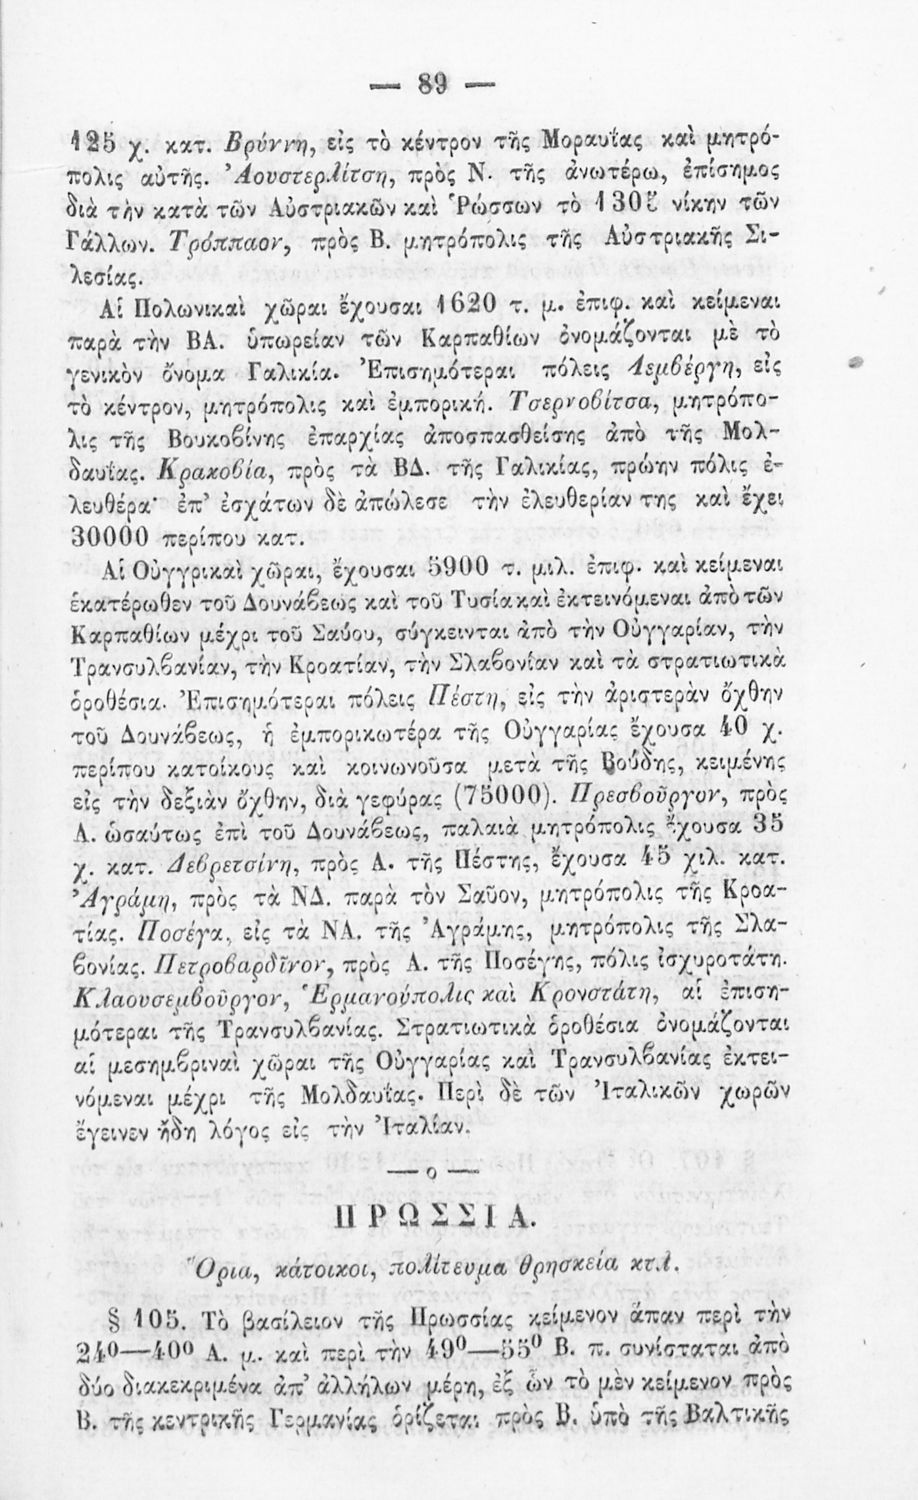 — 89 —
125 χ. κατ. Βρύννη, εἰς τὸ κέντρον τῆς Μοραυΐας καὶ μητρό-
πολις αὐτῆς. Ἀουστερλίτση, πρὸς Ν. τῆς ἀνωτέρω, ἐπίσημος
διὰ τὴν κατὰ τῶν Αὐστριακῶν καὶ Ῥώσσων τὸ 1305 νίκην τῶν
Γάλλων. Τρόππαον, πρὸς Β. μητρόπολις τῆς Αὐστριακῆς Σι-
λεσίας.
Αἱ Πολωνικαὶ χῶραι ἔχουσαι 1620 τ. μ. ἐπιφ. καὶ κείμεναι
παρὰ τὴν ΒΑ. ὑπωρείαν τῶν Καρπαθίων ὀνομάζονται μὲ τὸ
γενικὸν ὄνομα Γαλικία. Ἐπισημότεραι πόλεις Λεμβέργη, εἰς
τὸ κέντρον, μητρόπολις καὶ ἐμπορική. Τσερνοβίτσα, μητρόπο-
λις τῆς Βουκοβίνης ἐπαρχίας ἀποσπασθείσης ἀπὸ τῆς Μολ-
δαυΐας. Κρακοβία, πρὸς τὰ ΒΔ. τῆς Γαλικίας, πρώην πόλις ἐ-
λευθέρα· ἐπ’ ἐσχάτων δὲ ἀπώλεσε τὴν ἐλευθερίαν της καὶ ἔχει
30000 περίπου κατ.
Αἱ Οὑγγρικαὶ χῶραι, ἔχουσαι 5900 τ. μιλ. ἐπιφ. καὶ κείμεναι
ἑκατέρωθεν τοῦ Δουνάβεως καὶ τοῦ Τυσία καὶ ἐκτεινόμεναι ἀπὸ τῶν
Καρπαθίων μέχρι τοῦ Σαύου, σύγκεινται ἀπὸ τὴν Οὑγγαρίαν, τὴν
Τρανσυλβανίαν, τὴν Κροατίαν, τὴν Σλαβονίαν καὶ τὰ στρατιωτικὰ
ὁροθέσια. Ἐπισημότεραι πόλεις Πέστη, εἰς τὴν ἀριστερὰν ὄχθην
τοῦ Δουνάβεως, ἡ ἐμπορικωτέρα τῆς Οὑγγαρίας ἔχουσα 40 χ.
περίπου κατοίκους καὶ κοινωνοῦσα μετὰ τῆς Βούδης, κειμένης
εἰς τὴν δεξιὰν ὄχθην, διὰ γεφύρας (75000). Πρεσβοῦργον, πρὸς
Δ. ὡσαύτως ἐπὶ τοῦ Δουνάβεως, παλαιὰ μητρόπολις ἔχουσα 35
χ. κατ. Δεβρετσίνη, πρὸς Α. τῆς Πέστης, ἔχουσα 45 χιλ. κατ.
Ἀγράμη, πρὸς τὰ ΝΔ. παρὰ τὸν Σαῦον, μητρόπολις τῆς Κροα-
τίας. Ποσέγα, εἰς τὰ ΝΑ. τῆς Ἀγράμης, μητρόπολις τῆς Σλα-
βονίας. Πετροβαρδῖνον, πρὸς Α. τῆς Ποσέγης, πόλις ἰσχυροτάτη.
Κλαουσεμβοῦργον, Ἑρμανούπολις καὶ Κρονστάτη, αἱ ἐπιση-
μότεραι τῆς Τρανσυλβανίας. Στρατιωτικὰ ὁροθέσια ὀνομάζονται
αἱ μεσημβριναὶ χῶραι τῆς Οὑγγαρίας καὶ Τρανσυλβανίας ἐκτει-
νόμεναι μέχρι τῆς Μολδαυΐας. Περὶ δὲ τῶν Ἰταλικῶν χωρῶν
ἔγεινεν ἤδη λόγος εἰς τὴν Ἰταλίαν.
— ο —
ΠΡΩΣΣΙΑ.
Ὅρια, κάτοικοι, πολίτευμα θρησκεία κτλ.
§ 105. Τὸ βασίλειον τῆς Πρωσσίας κείμενον ἅπαν περὶ τὴν
24⁰—40⁰ Α. μ. καὶ περὶ τὴν 49⁰—55⁰ Β. π. συνίσταται ἀπὸ
δύο διακεκριμένα ἀπ’ ἀλλήλων μέρη, ἐξ ὧν τὸ μὲν κείμενον πρὸς
Β. τῆς κεντρικῆς Γερμανίας ὁρίζεται πρὸς Β. ὑπὸ τῆς Βαλτικῆς